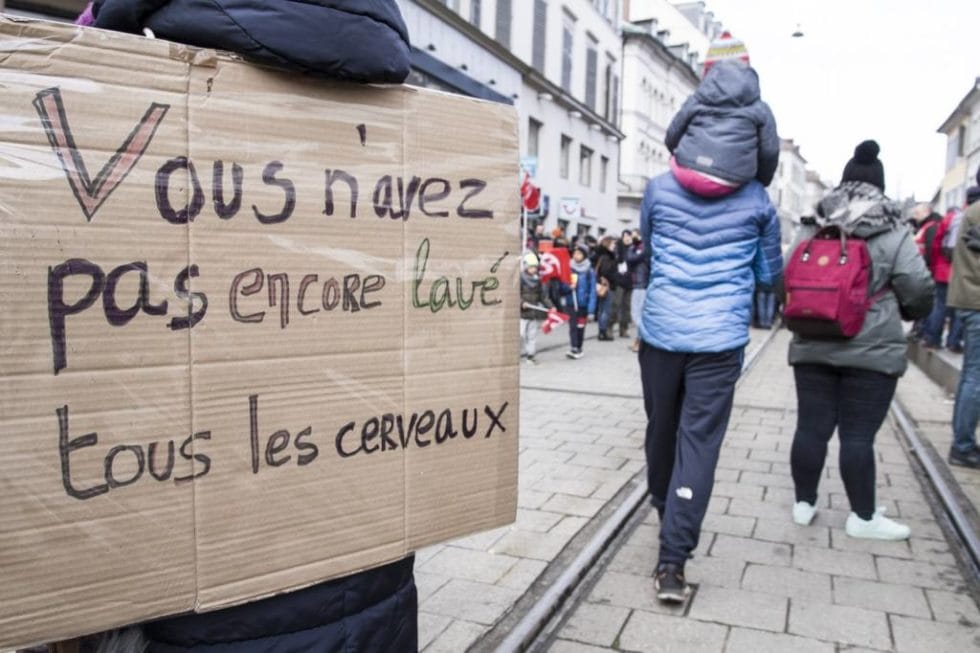 Vous n'avez
pas encore lavé
tous les cerveaux